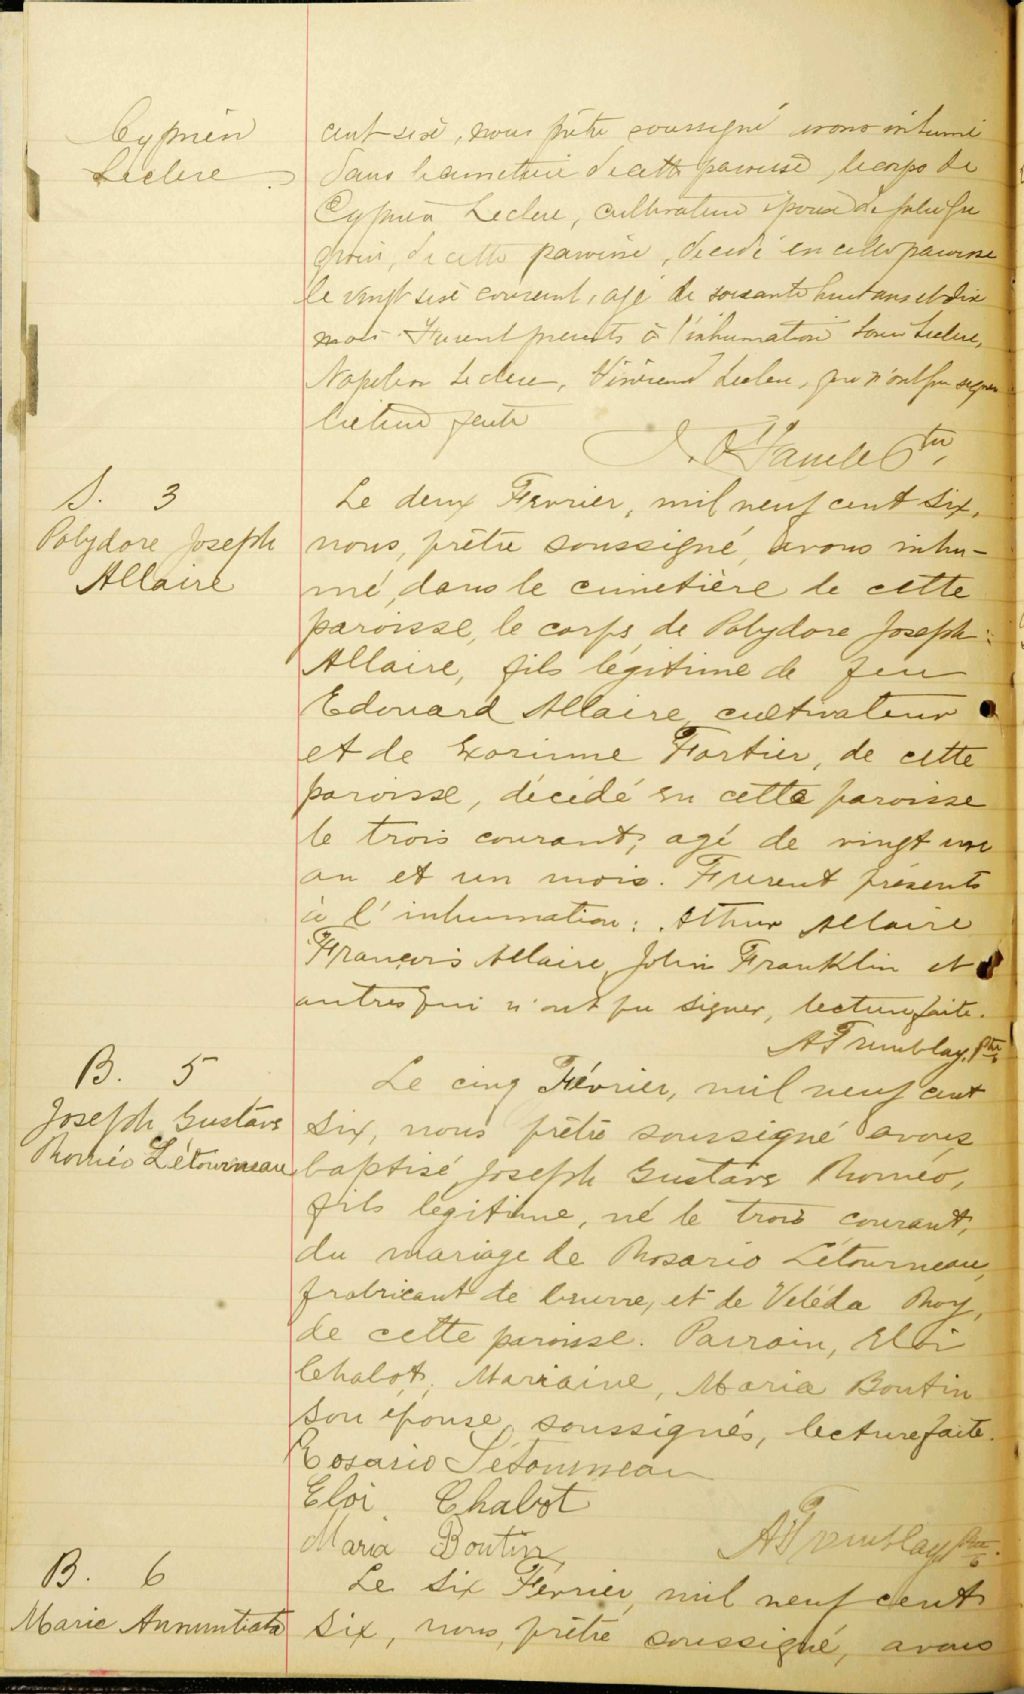 Cyprien
Leclerc
cent six, nous prêtre soussigné avons inhumé
dans le cimetière de cette paroisse, le corps de
Cyprien Leclerc, cultivateur époux de Julie Gre
de cette paroisse, décédé en cette paroisse
le vingt six courant, agé de soixante huit ans et dix
mois. Furent presents à l'inhumation Louis Leclerc,
Napoléon Leclerc, Leclerc, qui n'ont pu signer
lecture faite
S. 3
Polydore Joseph
Allaire
Le deux Fevrier, mil neuf cent six,
nous, prêtre soussigné, avons inhu-
mé, dans le cimetière de cette
paroisse, le corps de Polydore Joseph
Allaire, fils légitime de feu
Edouard Allaire, cultivateur
et de Exorinne Fortier, de cette
paroisse, décédé en cette paroisse
le trois courant, agé de vingt un
an et un mois. Furent présents
à l'inhumation: Arthur Allaire
François Allaire, John Franklin et
autres qui n'ont pu signer, lecture faite.
A Tremblay, Ptre
B. 5
Joseph Gustave
Roméo Létourneau
Le cinq Février, mil neuf cent
six, nous prêtre soussigné avons
baptisé, Joseph Gustave Roméo,
fils légitime, né le trois courant,
du mariage de Rosario Létourneau,
frabricant de beurre, et de Veléda Roy,
de cette paroisse. Parrain, Eloi
Chabot, Marraine, Maria Boutin
son épouse, soussignés, lecture faite.
Rosario Létourneau
Eloi Chabot
Maria Boutin
A Tremblay, Ptre
B. 6
Marie Annuntiata
Le six Fevrier, mil neuf cent
six, nous, prêtre soussigné, avons